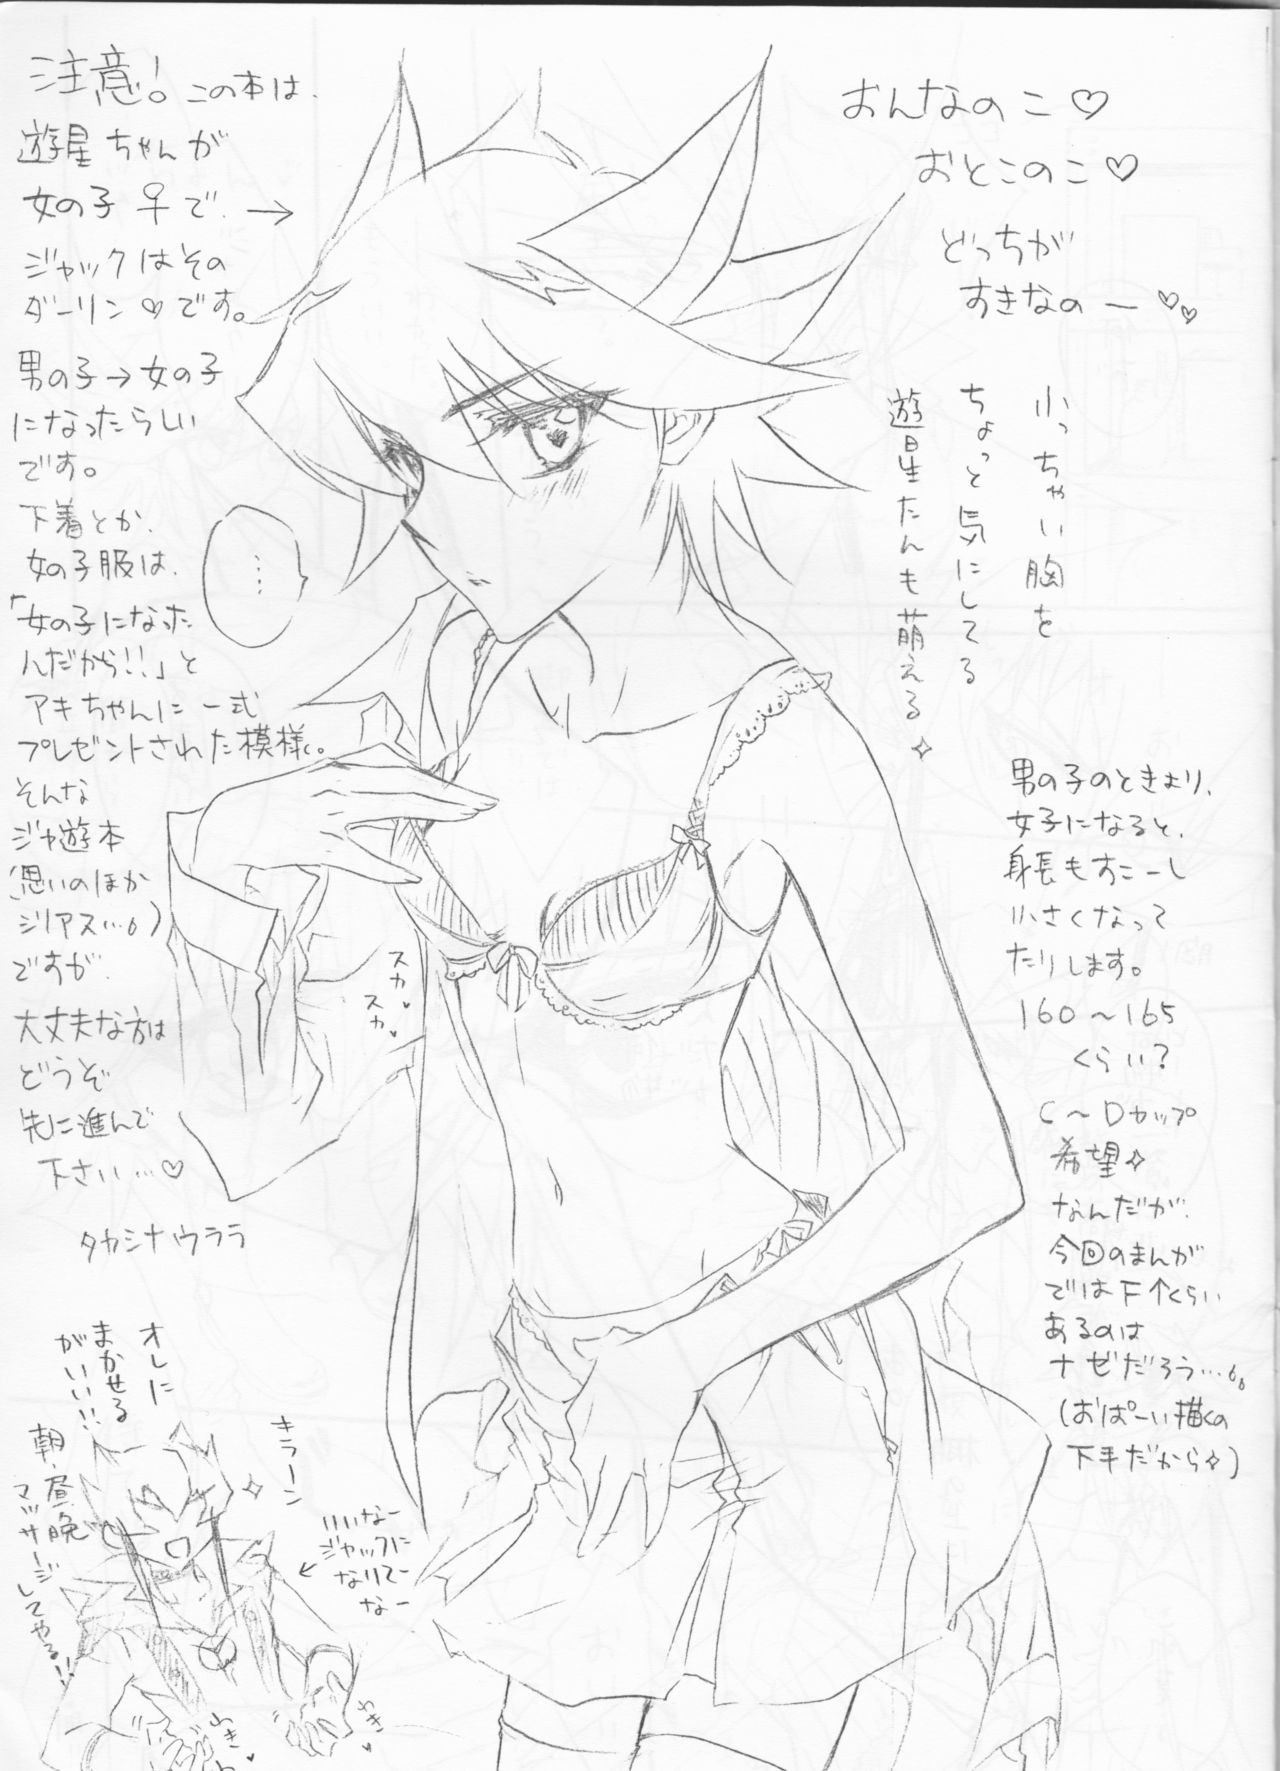 注意！この本は、
遊星ちゃんが
女の子♀で、→
ジャックはその
ダーリン♡です。
男の子→女の子
になったらしい
です。
下着とか、
女の子服は、
「女の子になった
んだから!!」と
アキちゃんに一式
プレゼントされた模様。
そんな
ジャ遊本
(思いのほか
シリアス…)
ですが、
大丈夫な方は
どうぞ
先に進んで
下さい…♡
タカシナウララ
おんなのこ♡
おとこのこ♡
どっちが
すきなのー♡♡
小っちゃい胸を
ちょっと気にしてる
遊星たんも萌える✧
……
スカ♥
スカ♥
男の子のときより、
女子になると、
身長もすこーし
小さくなって
たりします。
160〜165
くらい？
C〜Dカップ
希望✧
なんだが、
今回のまんが
ではF↑くらい
あるのは
ナゼだろう…。
(おぱーい描くの
下手だから✧)
オレに
まかせる
がいい!!
朝・昼・晩
マッサージ
してやる!!
キラーン
いいなー
ジャックに
なりてー
なー
わき♥
わき♥